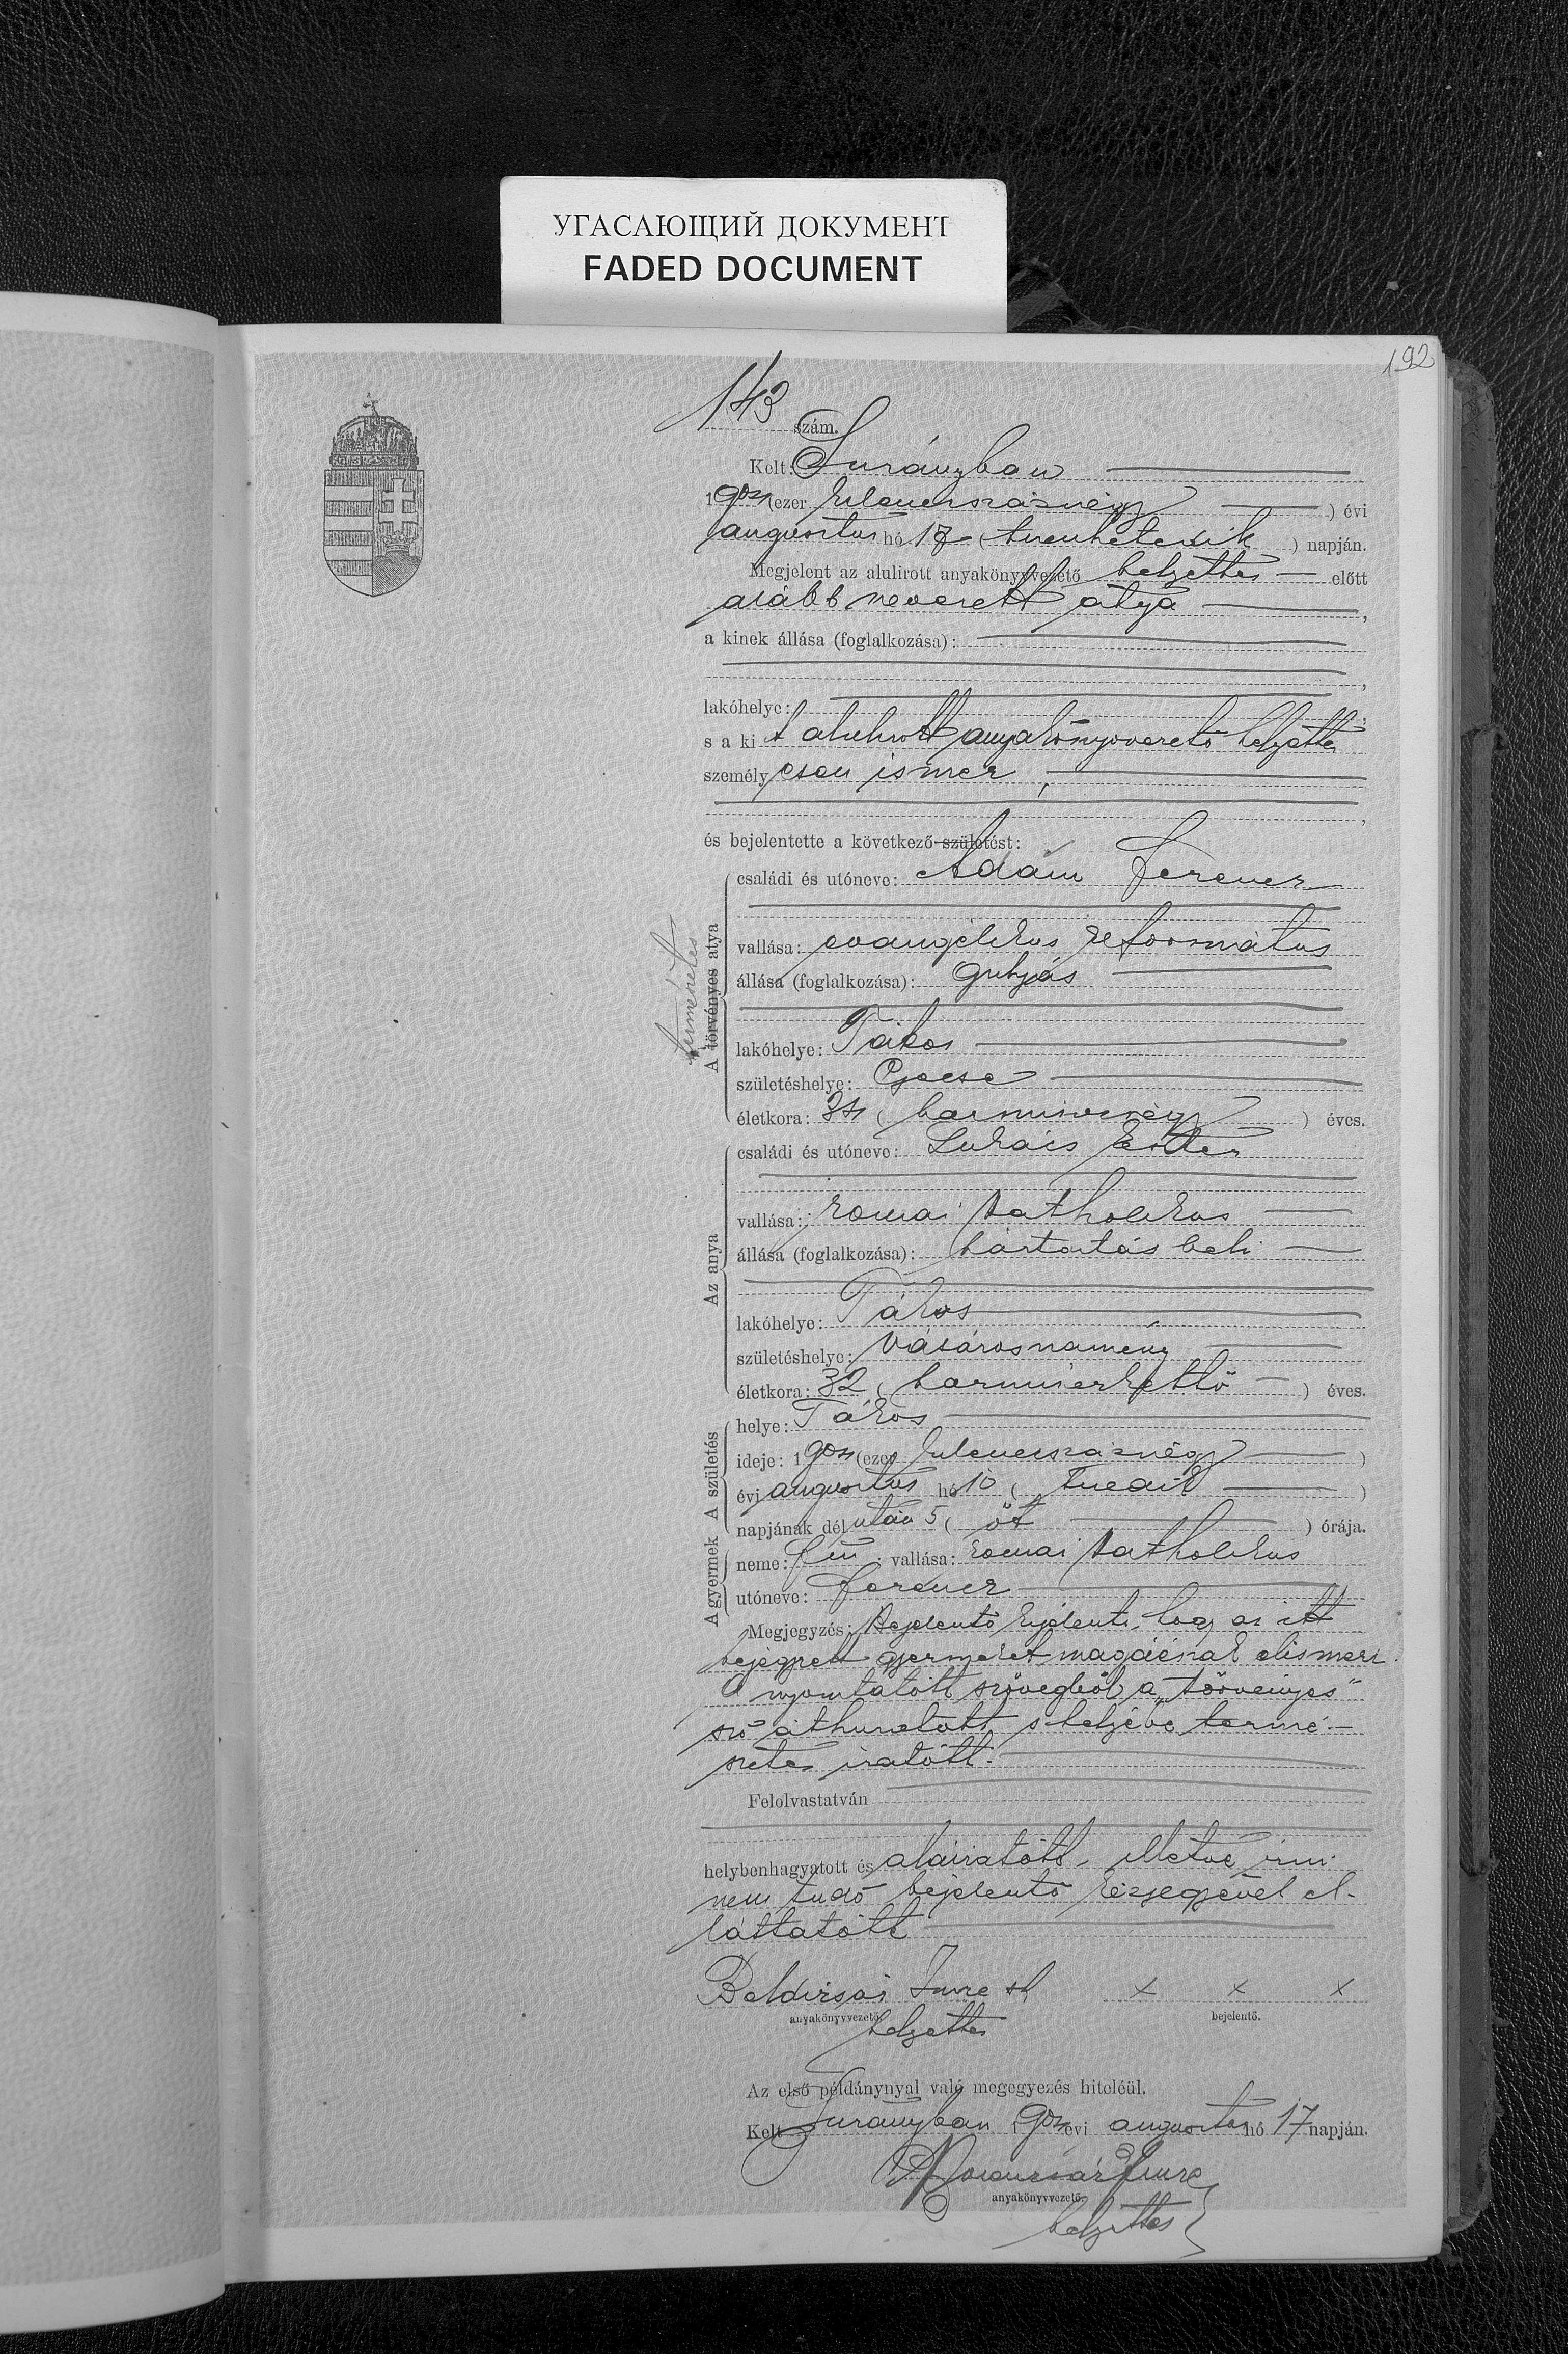 УГАСАЮЩИЙ ДОКУМЕНТ
FADED DOCUMENT
192
143 szám.
Kelt: Surányban
1904 (ezer kilencszáznégy) évi
augusztus hó 17 (tizenhetedik) napján.
Megjelent az alulirott anyakönyvvezető helyettes előtt
alább nevezett atya,
a kinek állása (foglalkozása):
lakóhelye:
s a ki t alulirott anyakönyvvezető helyettes
személyesen ismer,
és bejelentette a következő születést:
természetes
A törvényes atya
családi és utóneve: Ádám Ferencz
vallása: evangelikus református
állása (foglalkozása): gulyás
lakóhelye: Tákos
születéshelye:
életkora: 34 (harmincnégy) éves.
Az anya
családi és utóneve: Lukács Eszter
vallása: római katholikus
állása (foglalkozása): háztartásbeli
lakóhelye: Tákos
születéshelye: Vásárosnamény
életkora: 32 (harminczkettő) éves.
A születés
helye: Tákos
ideje: 1904 (ezer kilencszáznégy)
évi augusztus hó 10 (tizedik)
napjának délután 5 (öt) órája.
A gyermek
neme: fiú vallása: római katholikus
utóneve: Ferencz
Megjegyzés: Bejelentő kijelenti, hogy az itt
bejegyzett gyermeket magáénak elismeri.
A nyomtatott szövegből a „törvényes"
szó áthuzatott s helyébe termé-
szetes iratott.
Felolvastatván
helybenhagyatott és aláiratott, illetve irni
nem tudó bejelentő kézjegyével el-
láttatott
Imre sk
x x x
anyakönyvvezető
helyettes
bejelentő.
Az első példánynyal való megegyezés hiteléül.
Kelt Surányban 1904 évi augusztus hó 17 napján.
Imre
anyakönyvvezető
helyettes